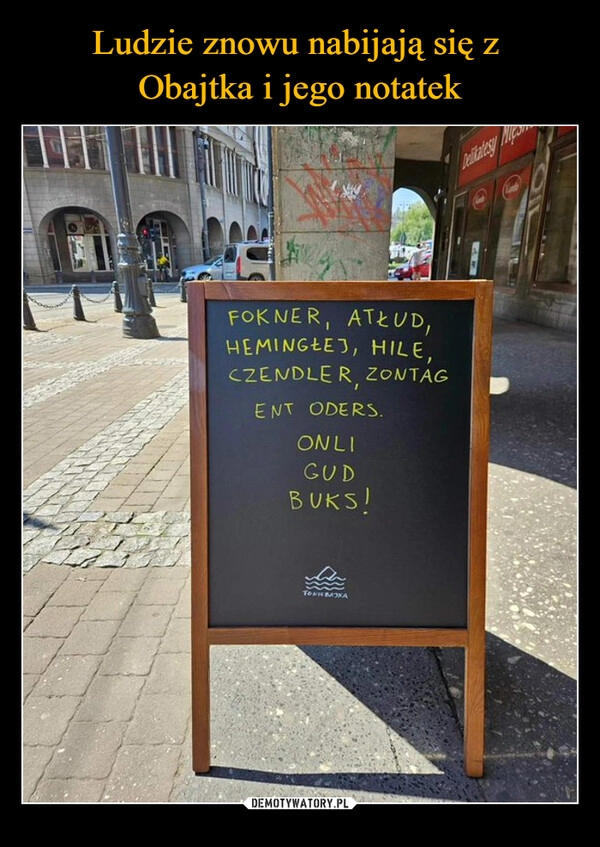 Ludzie znowu nabijają się z
Obajtka i jego notatek
Delikatesy Mięsne
FOKNER, ATŁUD,
HEMINGŁEJ, HILE,
CZENDLER, ZONTAG
ENT ODERS.
ONLI
GUD
BUKS!
TOŃ BAJKA
DEMOTYWATORY.PL